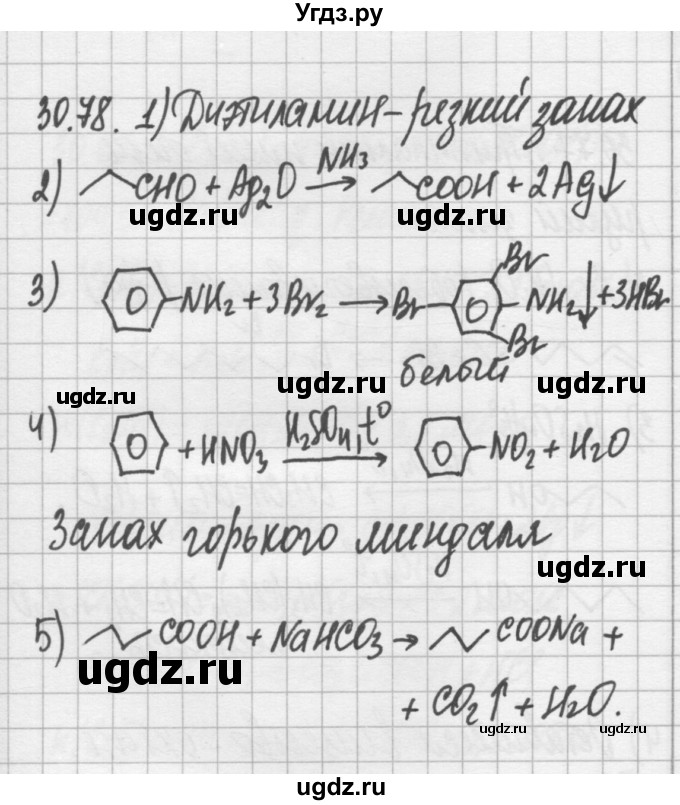 Угдз.ру
30.78. 1) Диэтиламин – резкий запах
2) CHO + Ag₂O NH₃ → COOH + 2Ag↓
ugdz.ru ugdz.ru
3) NH₂ + 3Br₂ → Br Br NH₂↓ + 3HBr
Br
белый
ugdz.ru ugdz.ru ugdz.ru
4) + HNO₃ H₂SO₄, t° → NO₂ + H₂O
ugdz.ru
Запах горького миндаля
ugdz.ru
5) COOH + NaHCO₃ → COONa +
ugdz.ru
+ CO₂↑ + H₂O.
ugdz.ru ugdz.ru
ugdz.ru